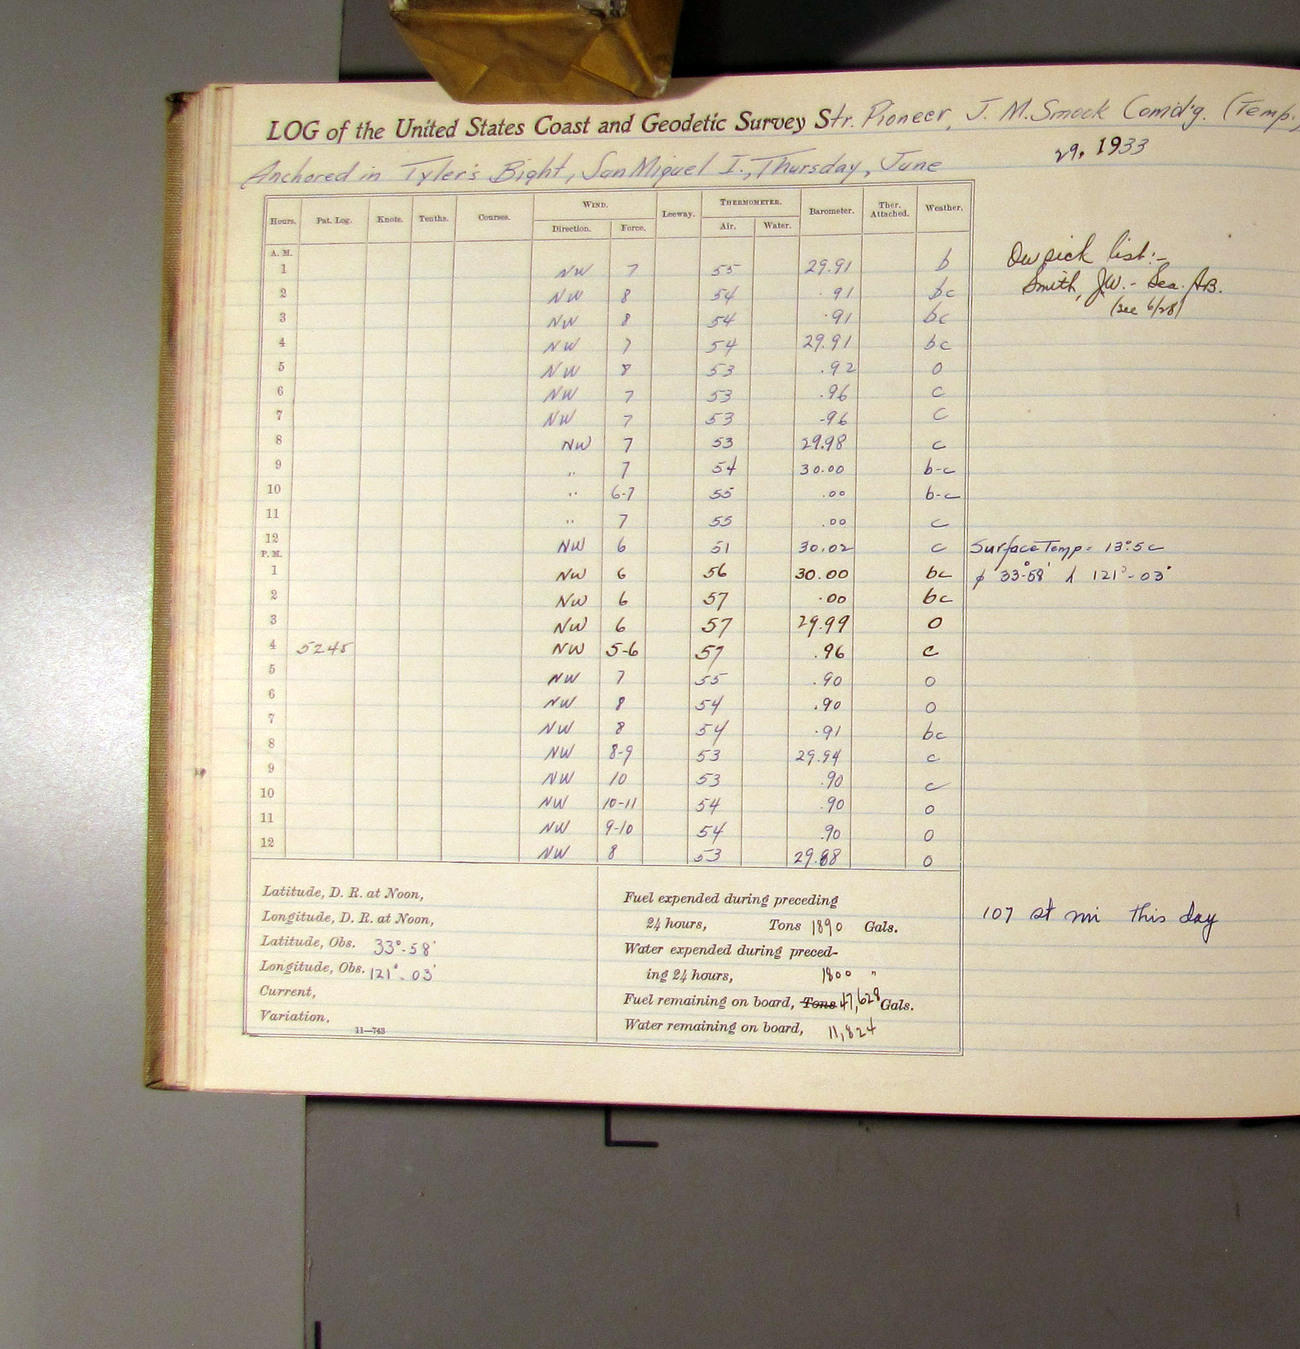 LOG of the United States Coast and Geodetic Survey Str. Pioneer, J. M. Smook Comd'g. (Temp.)
Anchored in Tyler's Bight, San Miguel I., Thursday, June 29, 1933
Hours. Pat. Log. Knots. Tenths. Courses. WIND. Leeway. THERMOMETER. Barometer. Ther. Attached. Weather.
Direction. Force. Air. Water.
A. M.
1 NW 7 55 29.91 b
On sick list:-
2 NW 8 54 .91 bc
Smith, J.W. - Sea. AB.
3 NW 8 54 .91 bc
(see 6/28)
4 NW 7 54 29.91 bc
5 NW 8 53 .92 o
6 NW 7 53 .96 c
7 NW 7 53 -96 c
8 NW 7 53 29.98 c
9 " 7 54 30.00 b-c
10 " 6-7 55 .00 b-c
11 " 7 55 .00 c
12 NW 6 51 30.02 c Surface Temp = 13°.5c
P. M.
1 NW 6 56 30.00 bc φ 33°-58' λ 121°-03'
2 NW 6 57 .00 bc
3 NW 6 57 29.99 o
4 5245 NW 5-6 57 .96 c
5 NW 7 55 .90 o
6 NW 8 54 .90 o
7 NW 8 54 .91 bc
8 NW 8-9 53 29.94 c
9 NW 10 53 .90 c
10 NW 10-11 54 .90 o
11 NW 9-10 54 .90 o
12 NW 8 53 29.88 o
Latitude, D. R. at Noon,
Longitude, D. R. at Noon,
Latitude, Obs. 33°-58'
Longitude, Obs. 121°-03'
Current,
Variation,
11—743
Fuel expended during preceding
24 hours, Tons 1890 Gals.
Water expended during preced-
ing 24 hours, 1800 "
Fuel remaining on board, Tons 47,628 Gals.
Water remaining on board, 11,824
107 st mi this day